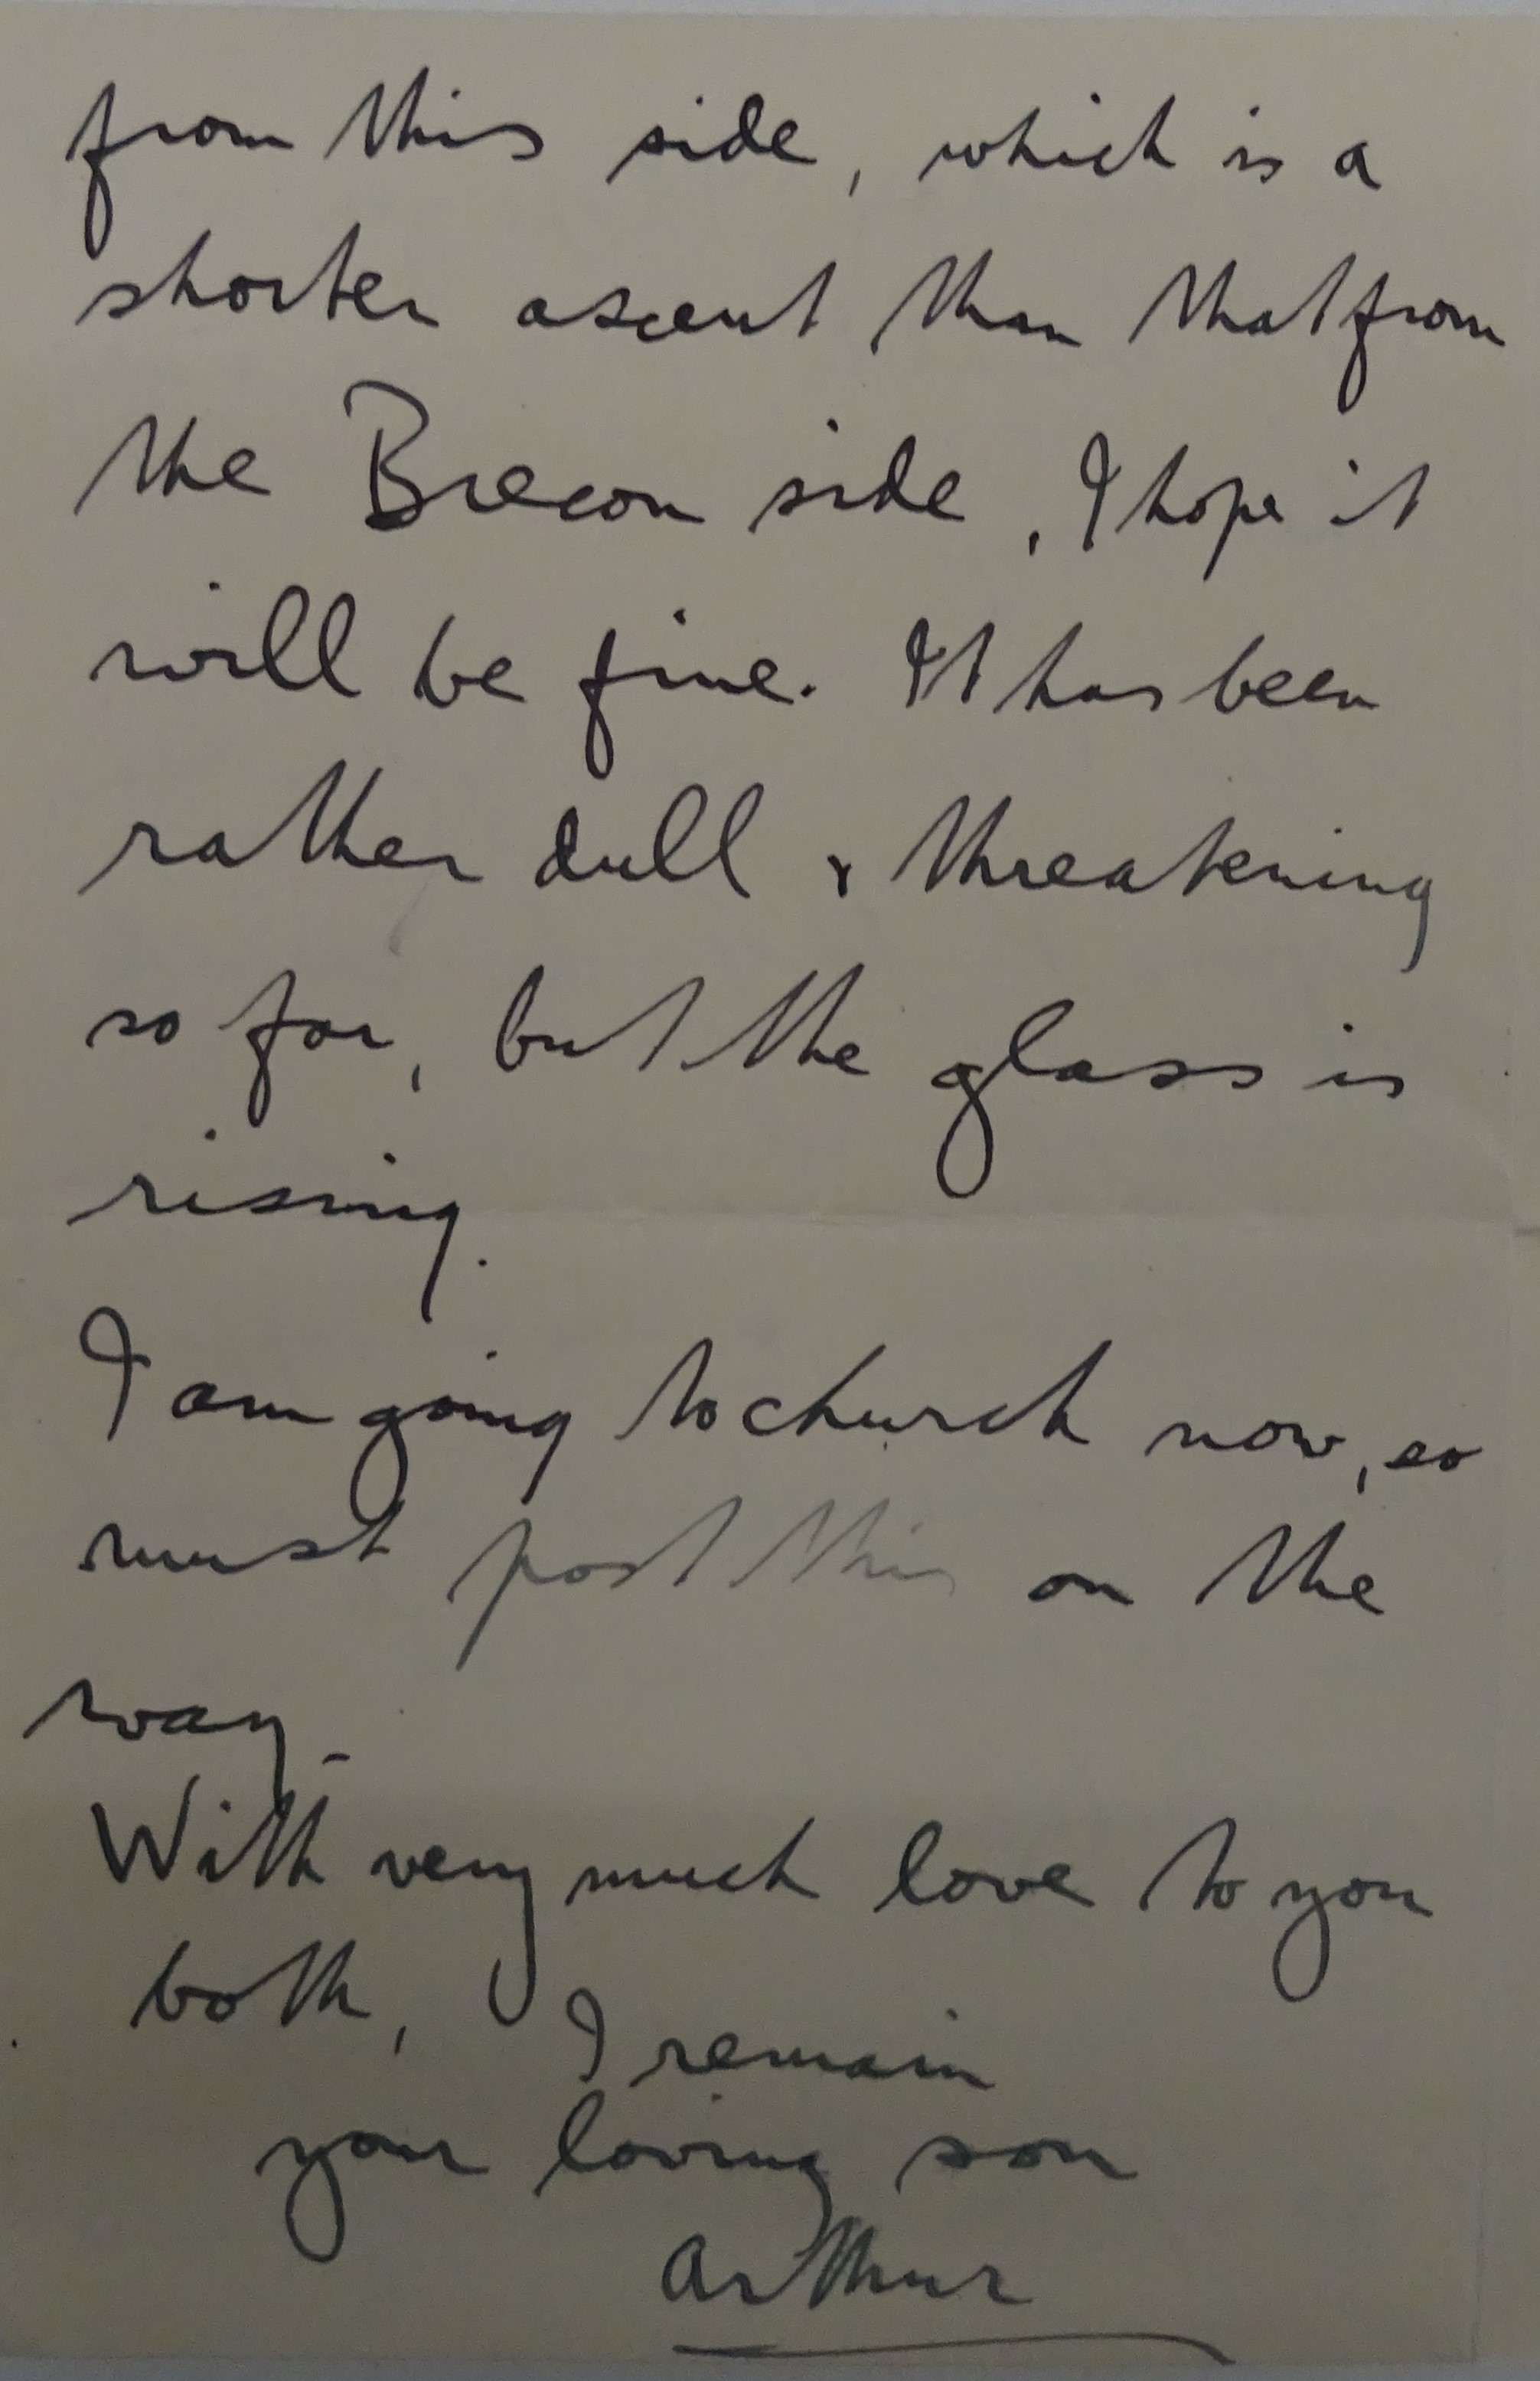 from this side, which is a
shorter ascent than that from
the Brecon side, I hope it
will be fine. It has been
rather dull & threatening
so far, but the glass is
rising.
I am going to church now, so
must post this on the
way.
With very much love to you
both, I remain
your loving son
Arthur